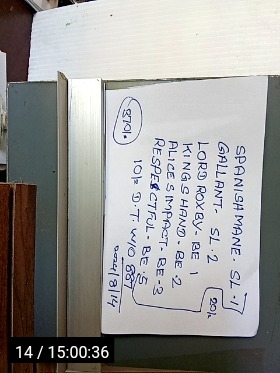 SPANISH MANE - SL. 1
GALLANT - SL. 2
LORD ROXBY - BE 1
KINGS HAND - BE. 2
ALICES IMPACT - BE - 3
RESPECTFUL - BE. 5
10/= D.T. W/O 887
20/=
2024/8/14
14 / 15:00:36